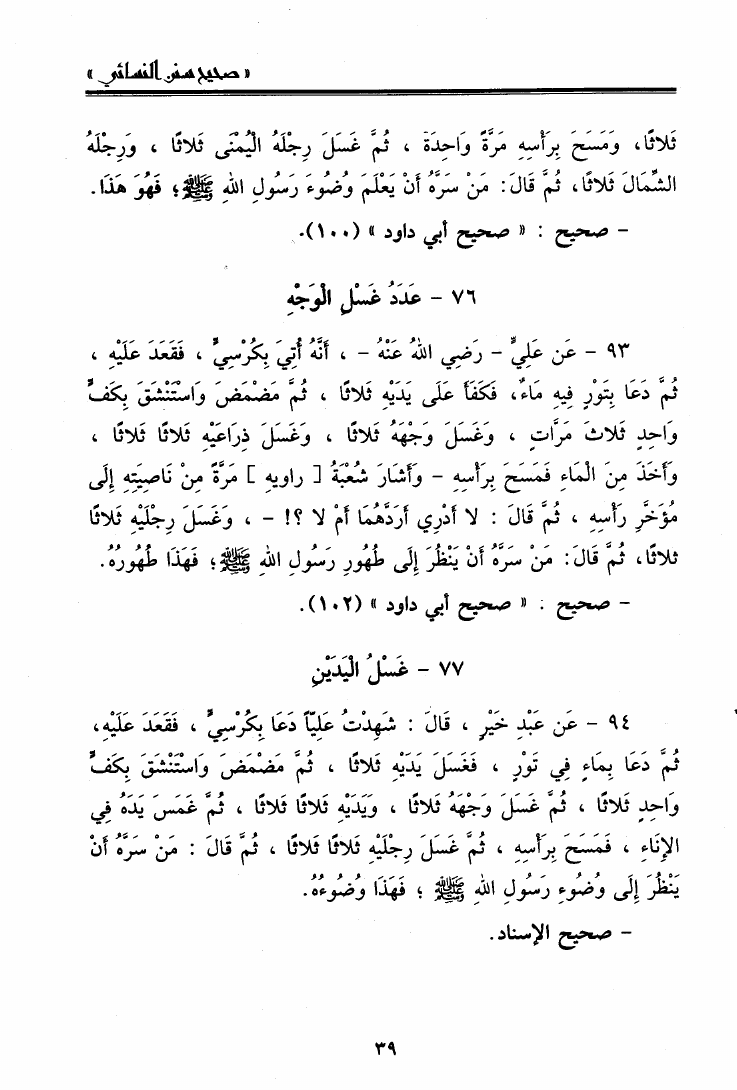 « صحيح سنن النسائي »
ثَلاثًا، وَمَسَحَ بِرَأْسِهِ مَرَّةً وَاحِدَة ، ثُمَّ غَسَلَ رِجْلَهُ الْيُمْنَى ثَلاثًا ، وَرِجْلَهُ
الشِّمَالَ ثَلاثًا، ثُمَّ قَالَ: مَنْ سَرَّهُ أَنْ يَعْلَمَ وُضُوءَ رَسُولِ اللهِ ﷺ؛ فَهُوَ هَذَا.
– صحيح : « صحيح أبي داود » (١٠٠).
٧٦ – عَدَدُ غَسْلِ الْوَجْهِ
٩٣ – عَن عَلِيٍّ – رَضِي اللهُ عَنْهُ – ، أَنَّهُ أُتِيَ بِكُرْسِيٍّ ، فَقَعَدَ عَلَيْهِ ،
ثُمَّ دَعَا بِتَوْرٍ فِيهِ مَاءٌ، فَكَفَأَ عَلَى يَدَيْهِ ثَلاثًا ، ثُمَّ مَضْمَضَ وَاسْتَنْشَقَ بِكَفٍّ
وَاحِدٍ ثَلاثَ مَرَّاتٍ ، وَغَسَلَ وَجْهَهُ ثَلاثًا ، وَغَسَلَ ذِرَاعَيْهِ ثَلاثًا ثَلاثًا ،
وَأَخَذَ مِنَ الْمَاءِ فَمَسَحَ بِرَأْسِهِ – وَأَشَارَ شُعْبَةُ [ راويهِ ] مَرَّةً مِنْ نَاصِيَتِهِ إِلَى
مُؤَخَّرِ رَأْسِهِ ، ثُمَّ قَالَ : لا أَدْرِي أَرَدَّهُمَا أَمْ لا ؟! – ، وَغَسَلَ رِجْلَيْهِ ثَلاثًا
ثَلاثًا، ثُمَّ قَالَ: مَنْ سَرَّهُ أَنْ يَنْظُرَ إِلَى طُهُورِ رَسُولِ اللهِ ﷺ؛ فَهَذَا طُهُورُهُ.
– صحيح : « صحيح أبي داود » (١٠٢).
٧٧ – غَسْلُ الْيَدَيْنِ
٩٤ – عَن عَبْدِ خَيْرٍ ، قَالَ : شَهِدْتُ عَلِيّاً دَعَا بِكُرْسِيٍّ ، فَقَعَدَ عَلَيْهِ،
ثُمَّ دَعَا بِمَاءٍ فِي تَوْرٍ ، فَغَسَلَ يَدَيْهِ ثَلاثًا ، ثُمَّ مَضْمَضَ وَاسْتَنْشَقَ بِكَفٍّ
وَاحِدٍ ثَلاثًا ، ثُمَّ غَسَلَ وَجْهَهُ ثَلاثًا ، وَيَدَيْهِ ثَلاثًا ثَلاثًا ، ثُمَّ غَمَسَ يَدَهُ فِي
الإِنَاءِ ، فَمَسَحَ بِرَأْسِهِ ، ثُمَّ غَسَلَ رِجْلَيْهِ ثَلاثًا ثَلاثًا ، ثُمَّ قَالَ : مَنْ سَرَّهُ أَنْ
يَنْظُرَ إِلَى وُضُوءِ رَسُولِ اللهِ ﷺ ؛ فَهَذَا وُضُوءُهُ.
– صحيح الإسناد.
٣٩